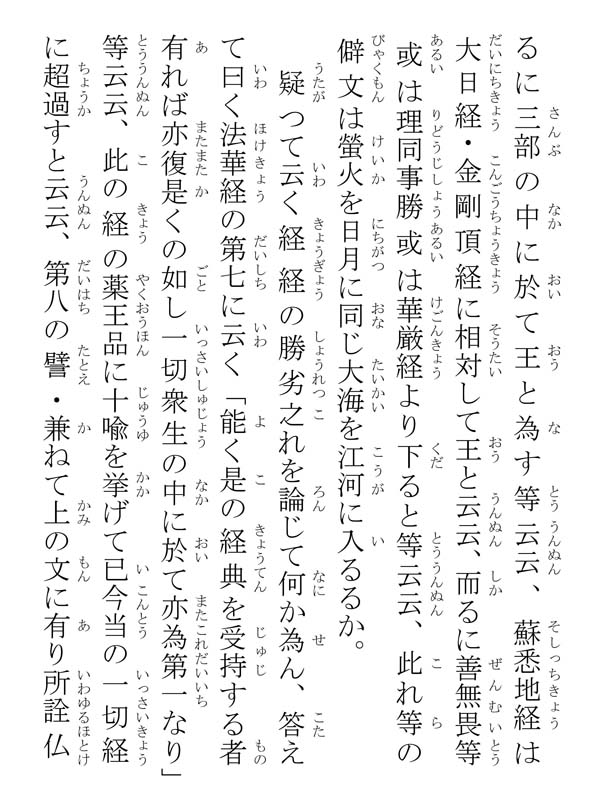 るに三部の中に於て王と為す等云云、蘇悉地経は
大日経・金剛頂経に相対して王と云云、而るに善無畏等
或は理同事勝或は華厳経より下ると等云云、此れ等の
僻文は螢火を日月に同じ大海を江河に入るるか。
疑つて云く経経の勝劣之れを論じて何か為ん、答え
て曰く法華経の第七に云く「能く是の経典を受持する者
有れば亦復是くの如し一切衆生の中に於て亦為第一なり」
等云云、此の経の薬王品に十喩を挙げて已今当の一切経
に超過すと云云、第八の譬・兼ねて上の文に有り所詮仏